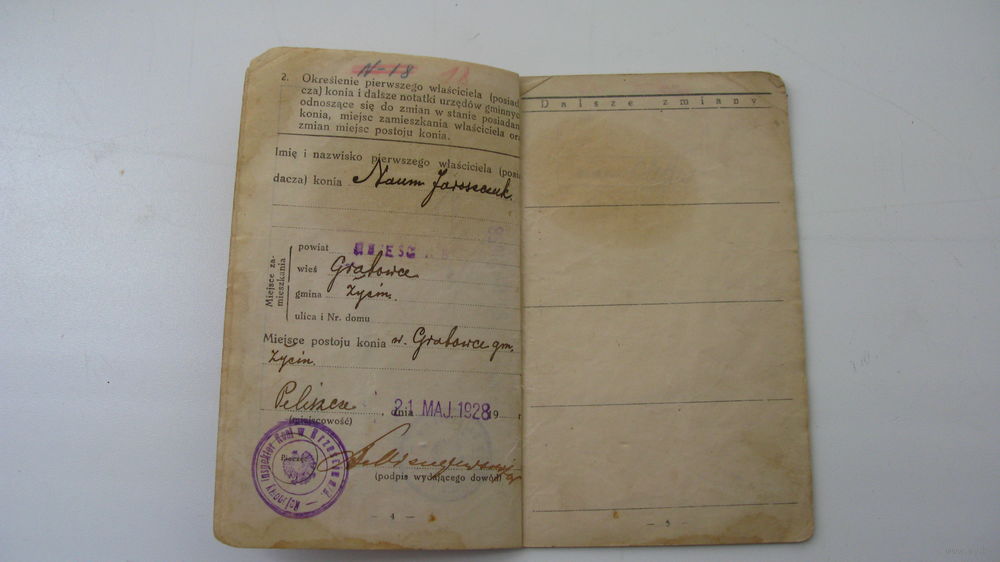 N-18 18
2. Określenie pierwszego właściciela (posiad
cza) konia i dalsze notatki urzędów gminnyc
odnoszące się do zmian w stanie posiadan
konia, miejsc zamieszkania właściciela ora
zmian miejsc postoju konia.
Imię i nazwisko pierwszego właściciela (posia
dacza) konia Naum Jaroszczuk.
Miejsce za-
mieszkania
powiat
wieś Grabowce
gmina Życin.
ulica i Nr. domu
Miejsce postoju konia w. Grabowce gm.
Życin.
Peliszcze, dnia 21 MAJ. 1928 19 r
(miejscowość)
Rejonowy Inspektor Koni w
Pieczęć
(podpis wydającego dowód)
— 4 —
Dalsze zmiany
— 5 —